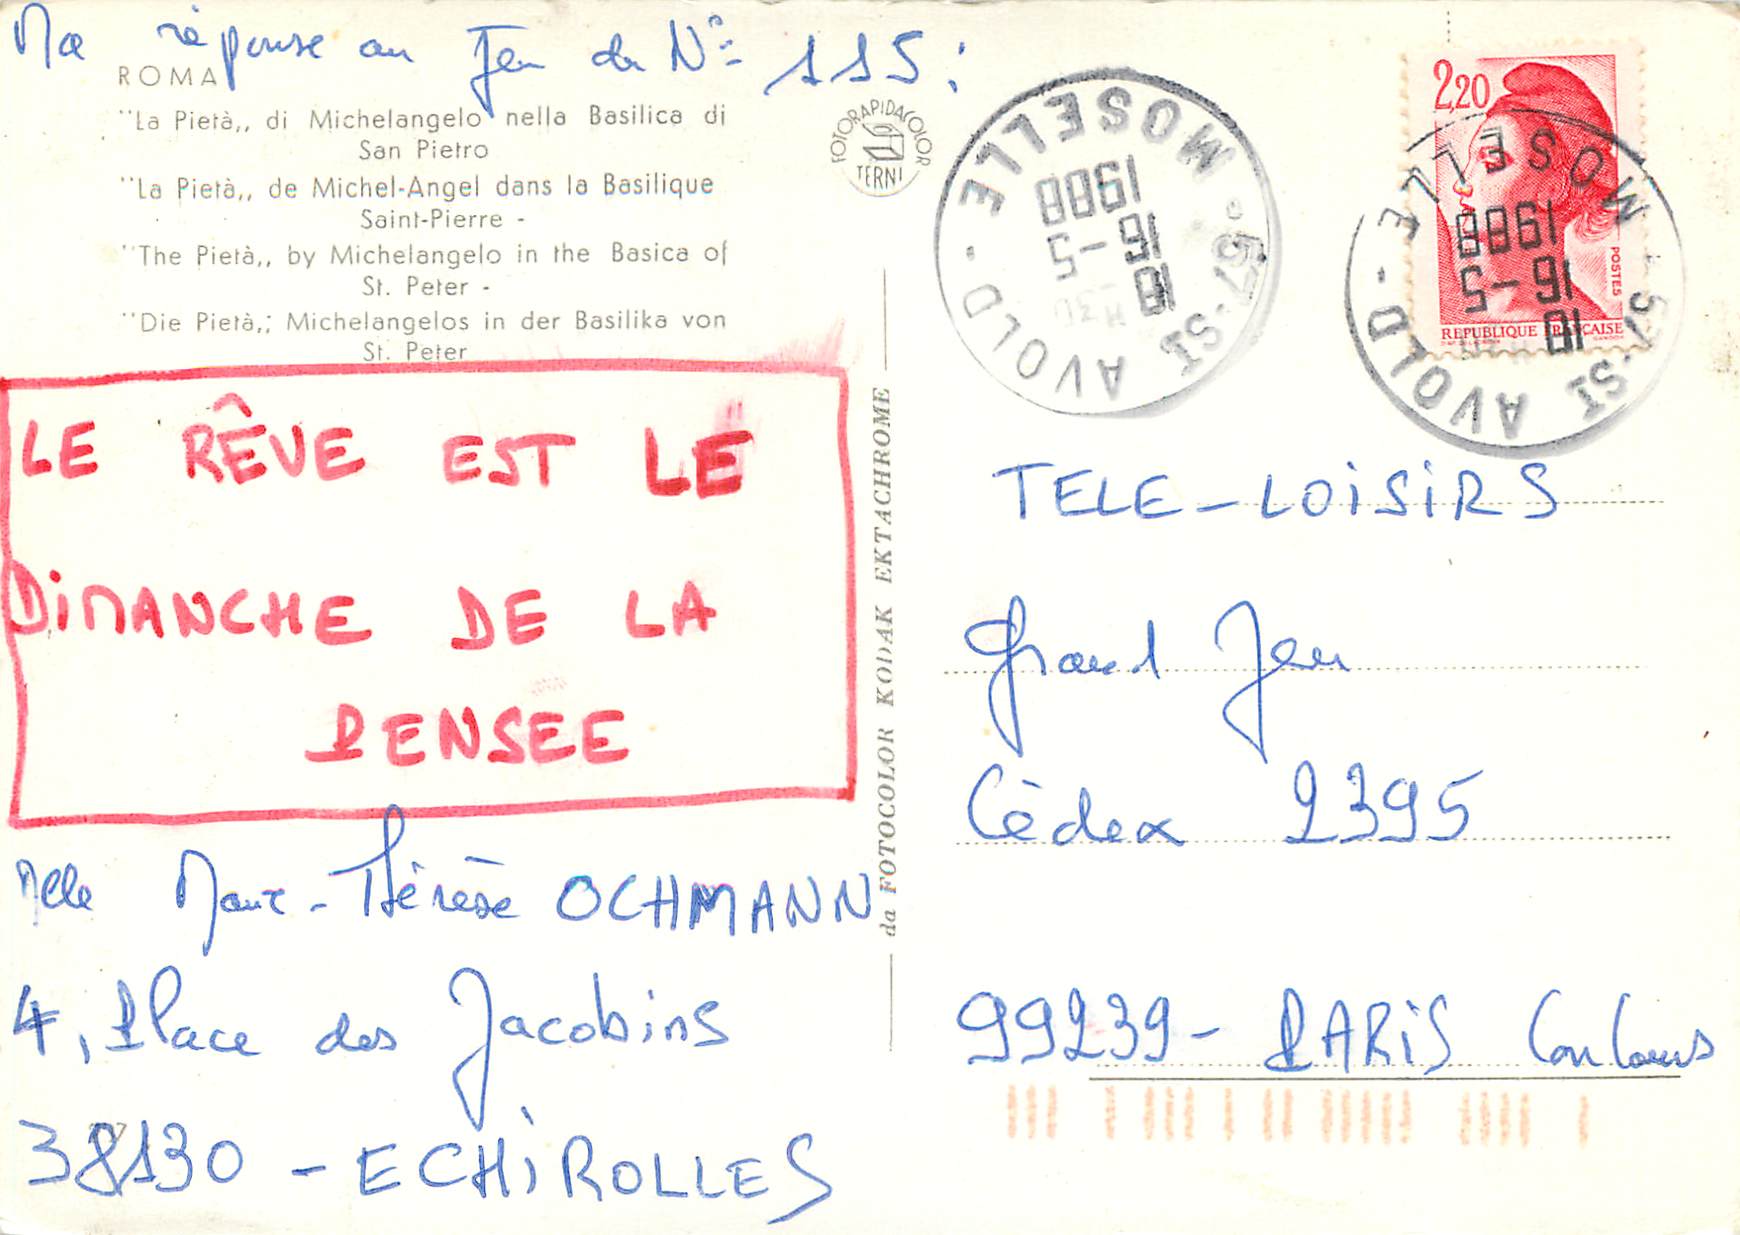 Ma réponse au Jeu du N° 115 :
ROMA
"La Pietà,, di Michelangelo nella Basilica di
San Pietro
"La Pietà,, de Michel-Angel dans la Basilique
Saint-Pierre -
"The Pietà,, by Michelangelo in the Basica of
St. Peter -
"Die Pietà,; Michelangelos in der Basilika von
St. Peter
LE RÊVE EST LE
DiMANCHE DE LA
PENSEE
Melle Marie-Thérèse OCHMANN
4, Place des Jacobins
38130 - ECHiROLLES
FOTORAPIDACOLOR
TERNI
da FOTOCOLOR KODAK EKTACHROME
57-ST AVOLD - MOSELLE
18 H30
16-5
1988
2,20
POSTES
REPUBLIQUE FRANÇAISE
57-ST AVOLD - MOSELLE
18
16-5
1988
TELE-LOiSiRS
Grand Jeu
Cédex 2395
99239- PARiS Concours